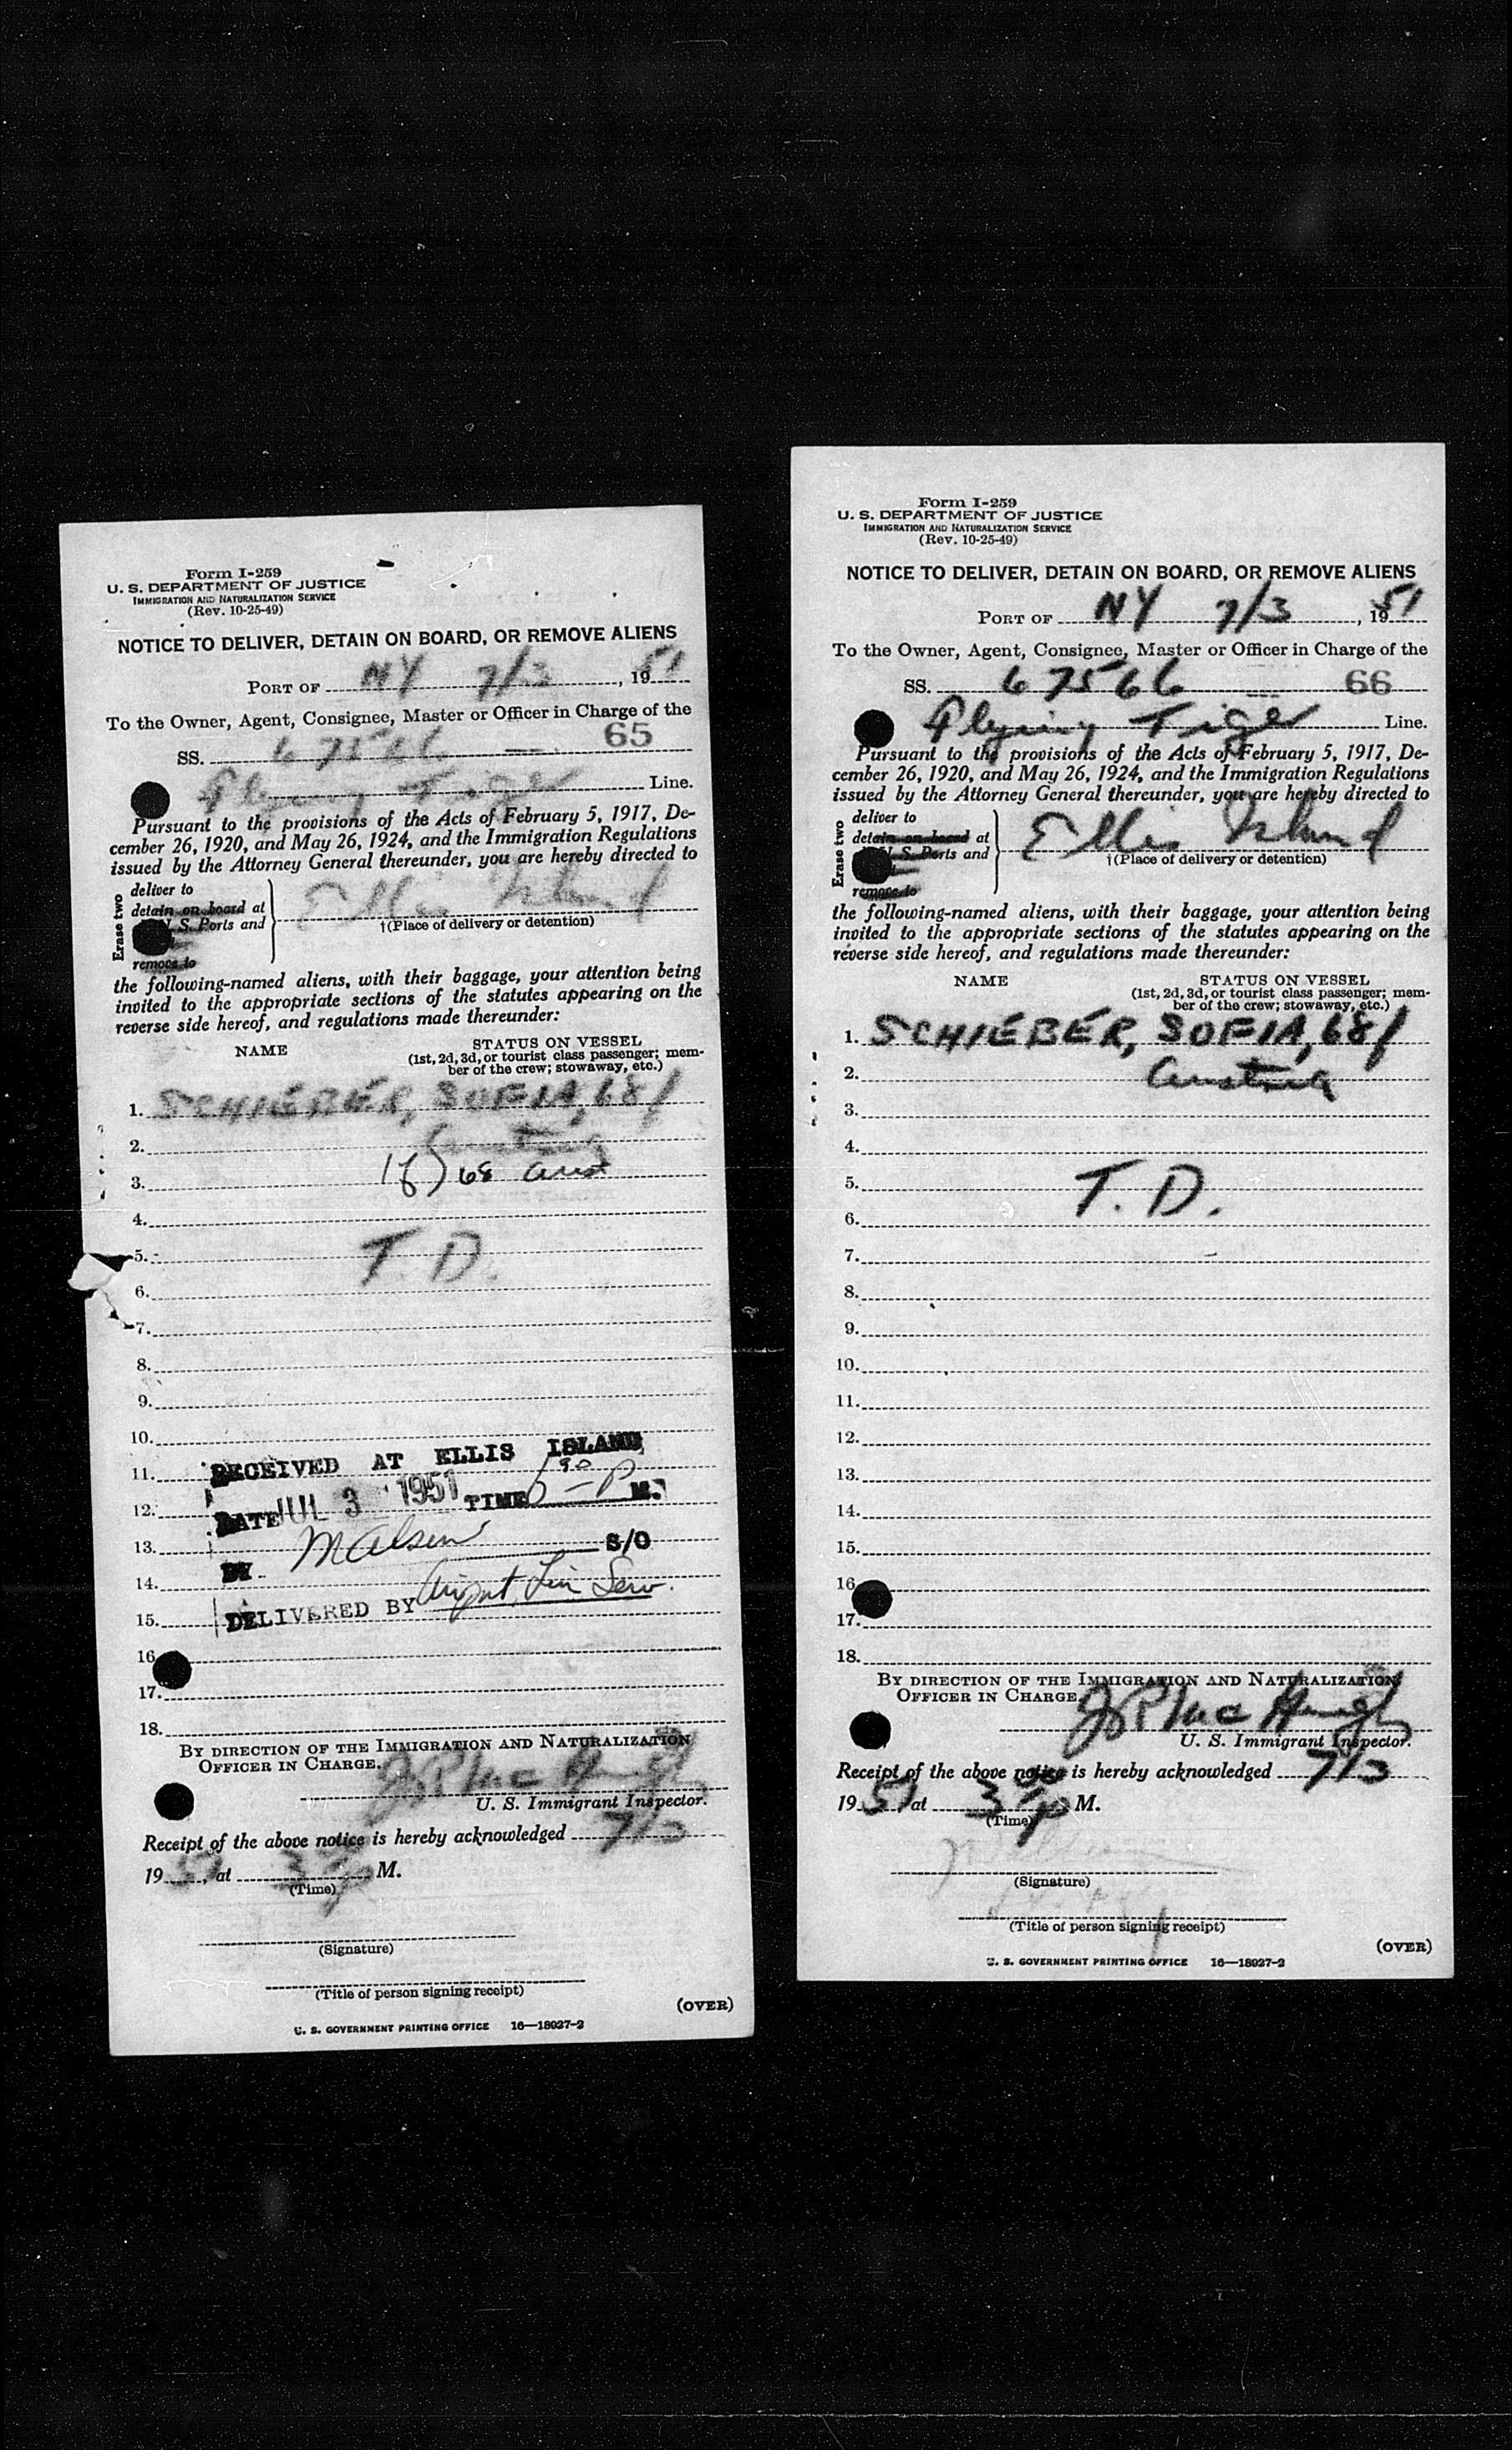 Form I-259
U. S. DEPARTMENT OF JUSTICE
IMMIGRATION AND NATURALIZATION SERVICE
(Rev. 10-25-49)
NOTICE TO DELIVER, DETAIN ON BOARD, OR REMOVE ALIENS
PORT OF NY 7/3, 1951
To the Owner, Agent, Consignee, Master or Officer in Charge of the
65
SS. 67566
Flying Tiger Line.
Pursuant to the provisions of the Acts of February 5, 1917, De-
cember 26, 1920, and May 26, 1924, and the Immigration Regulations
issued by the Attorney General thereunder, you are hereby directed to
Erase two
deliver to
detain on board at
U. S. Ports and
remove to
Ellis Island
†(Place of delivery or detention)
the following-named aliens, with their baggage, your attention being
invited to the appropriate sections of the statutes appearing on the
reverse side hereof, and regulations made thereunder:
NAME STATUS ON VESSEL
(1st, 2d, 3d, or tourist class passenger; mem-
ber of the crew; stowaway, etc.)
1. SCHIEBER, SOFIA, 68f
2. Austria
3. 1f) 68 Aust
4.
5. T. D.
6.
7.
8.
9.
10.
11. RECEIVED AT ELLIS ISLAND
12. DATE JUL 3 1951 TIME P M.
13. BY S/O
14.
15. DELIVERED BY Airport Lim Serv.
16.
17.
18.
BY DIRECTION OF THE IMMIGRATION AND NATURALIZATION
OFFICER IN CHARGE.
U. S. Immigrant Inspector.
Receipt of the above notice is hereby acknowledged 7/3
1951, at 3 00 p M.
(Time)
(Signature)
(Title of person signing receipt)
(OVER)
U. S. GOVERNMENT PRINTING OFFICE 16—18027-2
Form I-259
U. S. DEPARTMENT OF JUSTICE
IMMIGRATION AND NATURALIZATION SERVICE
(Rev. 10-25-49)
NOTICE TO DELIVER, DETAIN ON BOARD, OR REMOVE ALIENS
PORT OF NY 7/3, 1951
To the Owner, Agent, Consignee, Master or Officer in Charge of the
SS. 67566 66
Flying Tiger Line.
Pursuant to the provisions of the Acts of February 5, 1917, De-
cember 26, 1920, and May 26, 1924, and the Immigration Regulations
issued by the Attorney General thereunder, you are hereby directed to
Erase two
deliver to
detain on board at
U. S. Ports and
remove to
Ellis Island
†(Place of delivery or detention)
the following-named aliens, with their baggage, your attention being
invited to the appropriate sections of the statutes appearing on the
reverse side hereof, and regulations made thereunder:
NAME STATUS ON VESSEL
(1st, 2d, 3d, or tourist class passenger; mem-
ber of the crew; stowaway, etc.)
1. SCHIEBER, SOFIA, 68f
2. Austria
3.
4.
5. T. D.
6.
7.
8.
9.
10.
11.
12.
13.
14.
15.
16.
17.
18.
BY DIRECTION OF THE IMMIGRATION AND NATURALIZATION
OFFICER IN CHARGE.
U. S. Immigrant Inspector.
Receipt of the above notice is hereby acknowledged 7/3
1951, at 3 00 p M.
(Time)
(Signature)
(Title of person signing receipt)
(OVER)
U. S. GOVERNMENT PRINTING OFFICE 16—18027-2